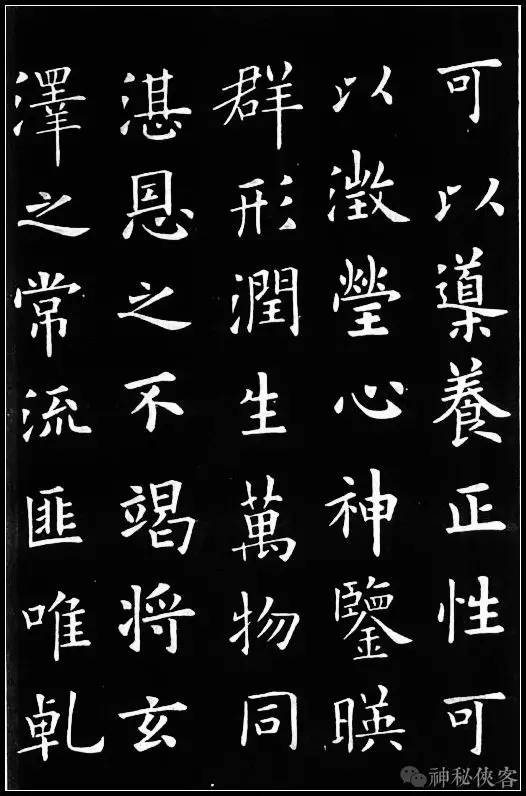 可以導養正性可
以澂瑩心神鑒暎
群形潤生萬物同
湛恩之不竭将玄
澤之常流匪唯乹
神秘俠客